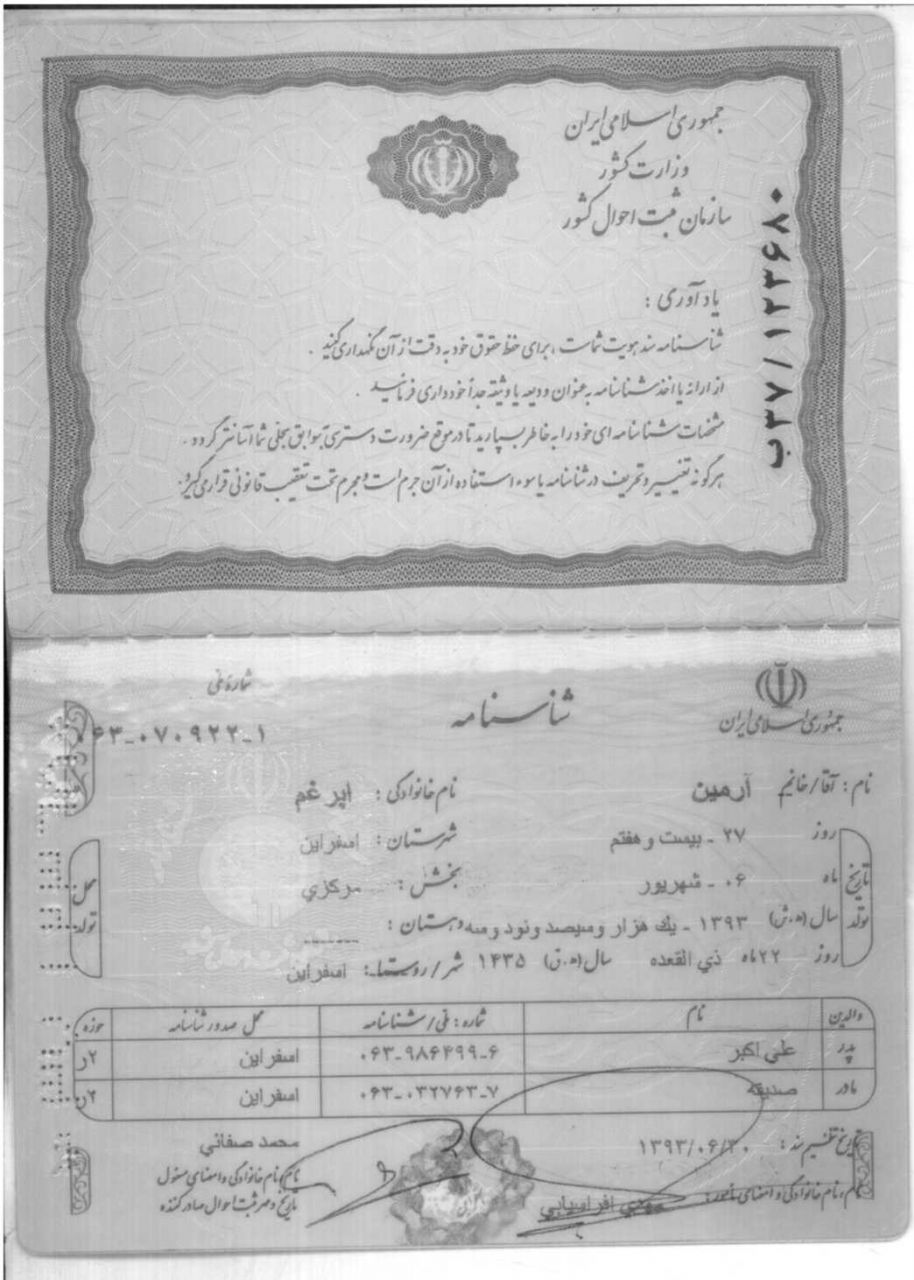 جمهوری اسلامی ایران
وزارت کشور
سازمان ثبت احوال کشور
ب۳۷/۱۲۳۶۸۰
یادآوری :
شناسنامه سند هویت شماست ، برای حفظ حقوق خود به دقت از آن نگهداری کنید .
از ارائه یا اخذ شناسنامه به عنوان ودیعه یا وثیقه جداً خودداری فرمائید .
مشخصات شناسنامه ای خود را به خاطر بسپارید تا در موقع ضرورت دسترسی بسوابق سجلی شما آسانتر گردد .
هرگونه تغییر و تحریف در شناسنامه یا سوء استفاده از آن جرم است و مجرم تحت تعقیب قانونی قرار می گیرد .
جمهوری اسلامی ایران
شناسنامه
شماره ملی
۰۶۳-۰۷۰۹۲۲-۱
نام : آقا/خانم آرمین نام خانوادگی : ایرغم
تاریخ تولد
روز ۲۷ - بیست و هفتم
ماه ۰۶ - شهریور
سال (ه.ش) ۱۳۹۳ - یك هزار و سیصد و نود و سه
روز ۲۲ ماه ذي القعده سال (ه.ق) ۱۴۳۵
محل تولد
شهرستان : اسفراین
بخش : مرکزي
دهستان : -------
شهر/روستا : اسفراین
والدین نام شماره : ملی/شناسنامه محل صدور شناسنامه حوزه
پدر علی اکبر ۰۶۳-۹۸۶۴۹۹-۶ اسفراین ۲ر
مادر صدیقه ۰۶۳-۰۳۲۷۶۳-۷ اسفراین ۲ر
تاریخ تنظیم سند : ۱۳۹۳/۰۶/۳۰
نام ، نام خانوادگی و امضای مأمور : افراسیابي
محمد صفائي
نام ، نام خانوادگی و امضای مسئول
تاریخ و مهر ثبت احوال صادر کننده